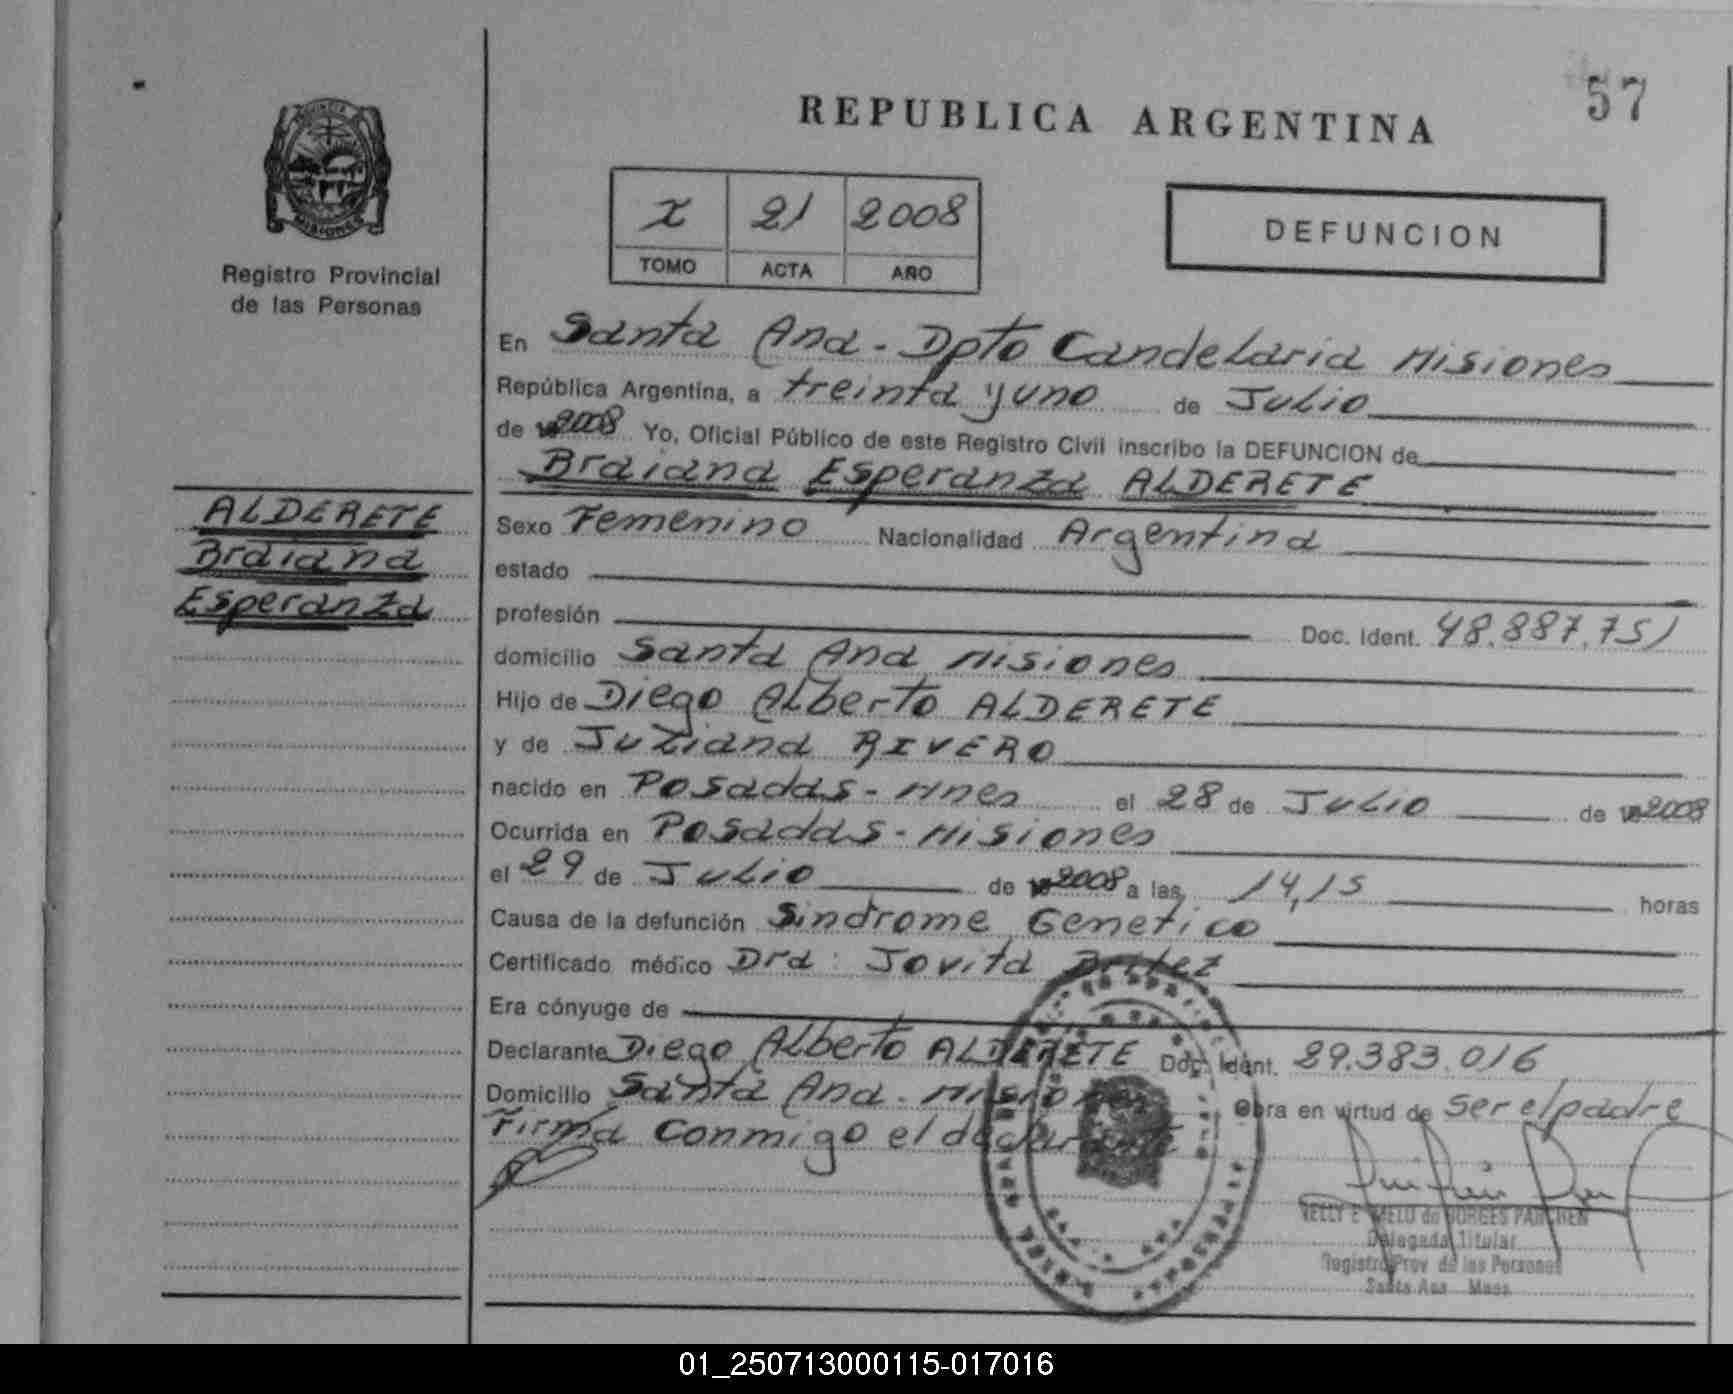 57
REPUBLICA ARGENTINA
PROVINCIA
MISIONES
Registro Provincial
de las Personas
X 21 2008
TOMO ACTA AÑO
DEFUNCION
En Santa Ana - Dpto Candelaria Misiones
República Argentina, a treinta y uno de Julio
de 2008 Yo, Oficial Público de este Registro Civil inscribo la DEFUNCION de
Braiana Esperanza ALDERETE
ALDERETE
Braiana
Esperanza
Sexo Femenino Nacionalidad Argentina
estado
profesión Doc. Ident. 48.887.751
domicilio Santa Ana Misiones
Hijo de Diego Alberto ALDERETE
y de Juliana RIVERO
nacido en Posadas - Mnes el 28 de Julio de 2008
Ocurrida en Posadas - Misiones
el 29 de Julio de 2008 a las 14,15 horas
Causa de la defunción Sindrome Genetico
Certificado médico Dra: Jovita Britez
Era cónyuge de
Declarante Diego Alberto ALDERETE Doc. Ident. 29.383.016
Domicilio Santa Ana - Misiones Obra en virtud de ser el padre
Firma conmigo el declarante
NELLY E. MELO de BORGES PARCHEN
Delegada Titular
Registro Prov. de las Personas
Santa Ana Mnes
01_250713000115-017016